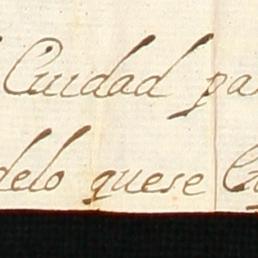 Cuidad pa
delo quese Cu